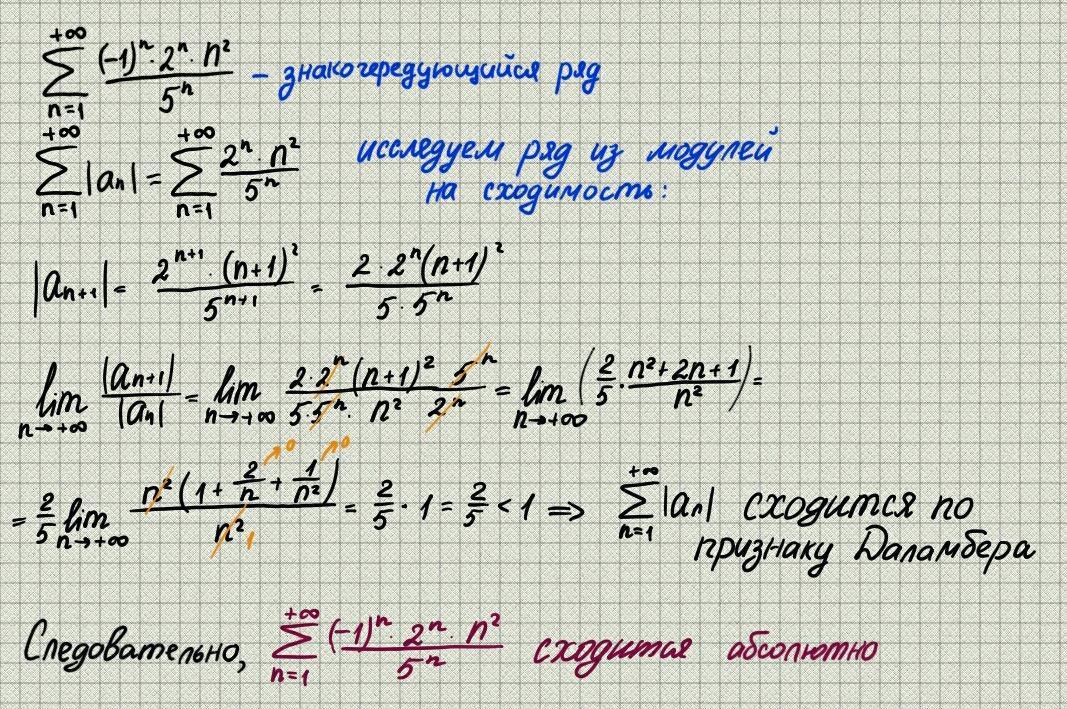 ∑_{n=1}^{+∞} ((-1)^n · 2^n · n²)/(5^n) – знакочередующийся ряд
∑_{n=1}^{+∞} |a_n| = ∑_{n=1}^{+∞} (2^n · n²)/(5^n) исследуем ряд из модулей
на сходимость:
|a_{n+1}| = (2^{n+1} · (n+1)²)/(5^{n+1}) = (2 · 2^n (n+1)²)/(5 · 5^n)
lim_{n→+∞} |a_{n+1}|/|a_n| = lim_{n→+∞} (2 · 2^n (n+1)² · 5^n)/(5 · 5^n · n² · 2^n) = lim_{n→+∞} (2/5 · (n² + 2n + 1)/n²) =
= 2/5 lim_{n→+∞} (n² (1 + 2/n^{→0} + 1/n²^{→0}))/(n² 1) = 2/5 · 1 = 2/5 < 1 ⟹ ∑_{n=1}^{+∞} |a_n| сходится по
признаку Даламбера
Следовательно, ∑_{n=1}^{+∞} ((-1)^n · 2^n · n²)/(5^n) сходится абсолютно